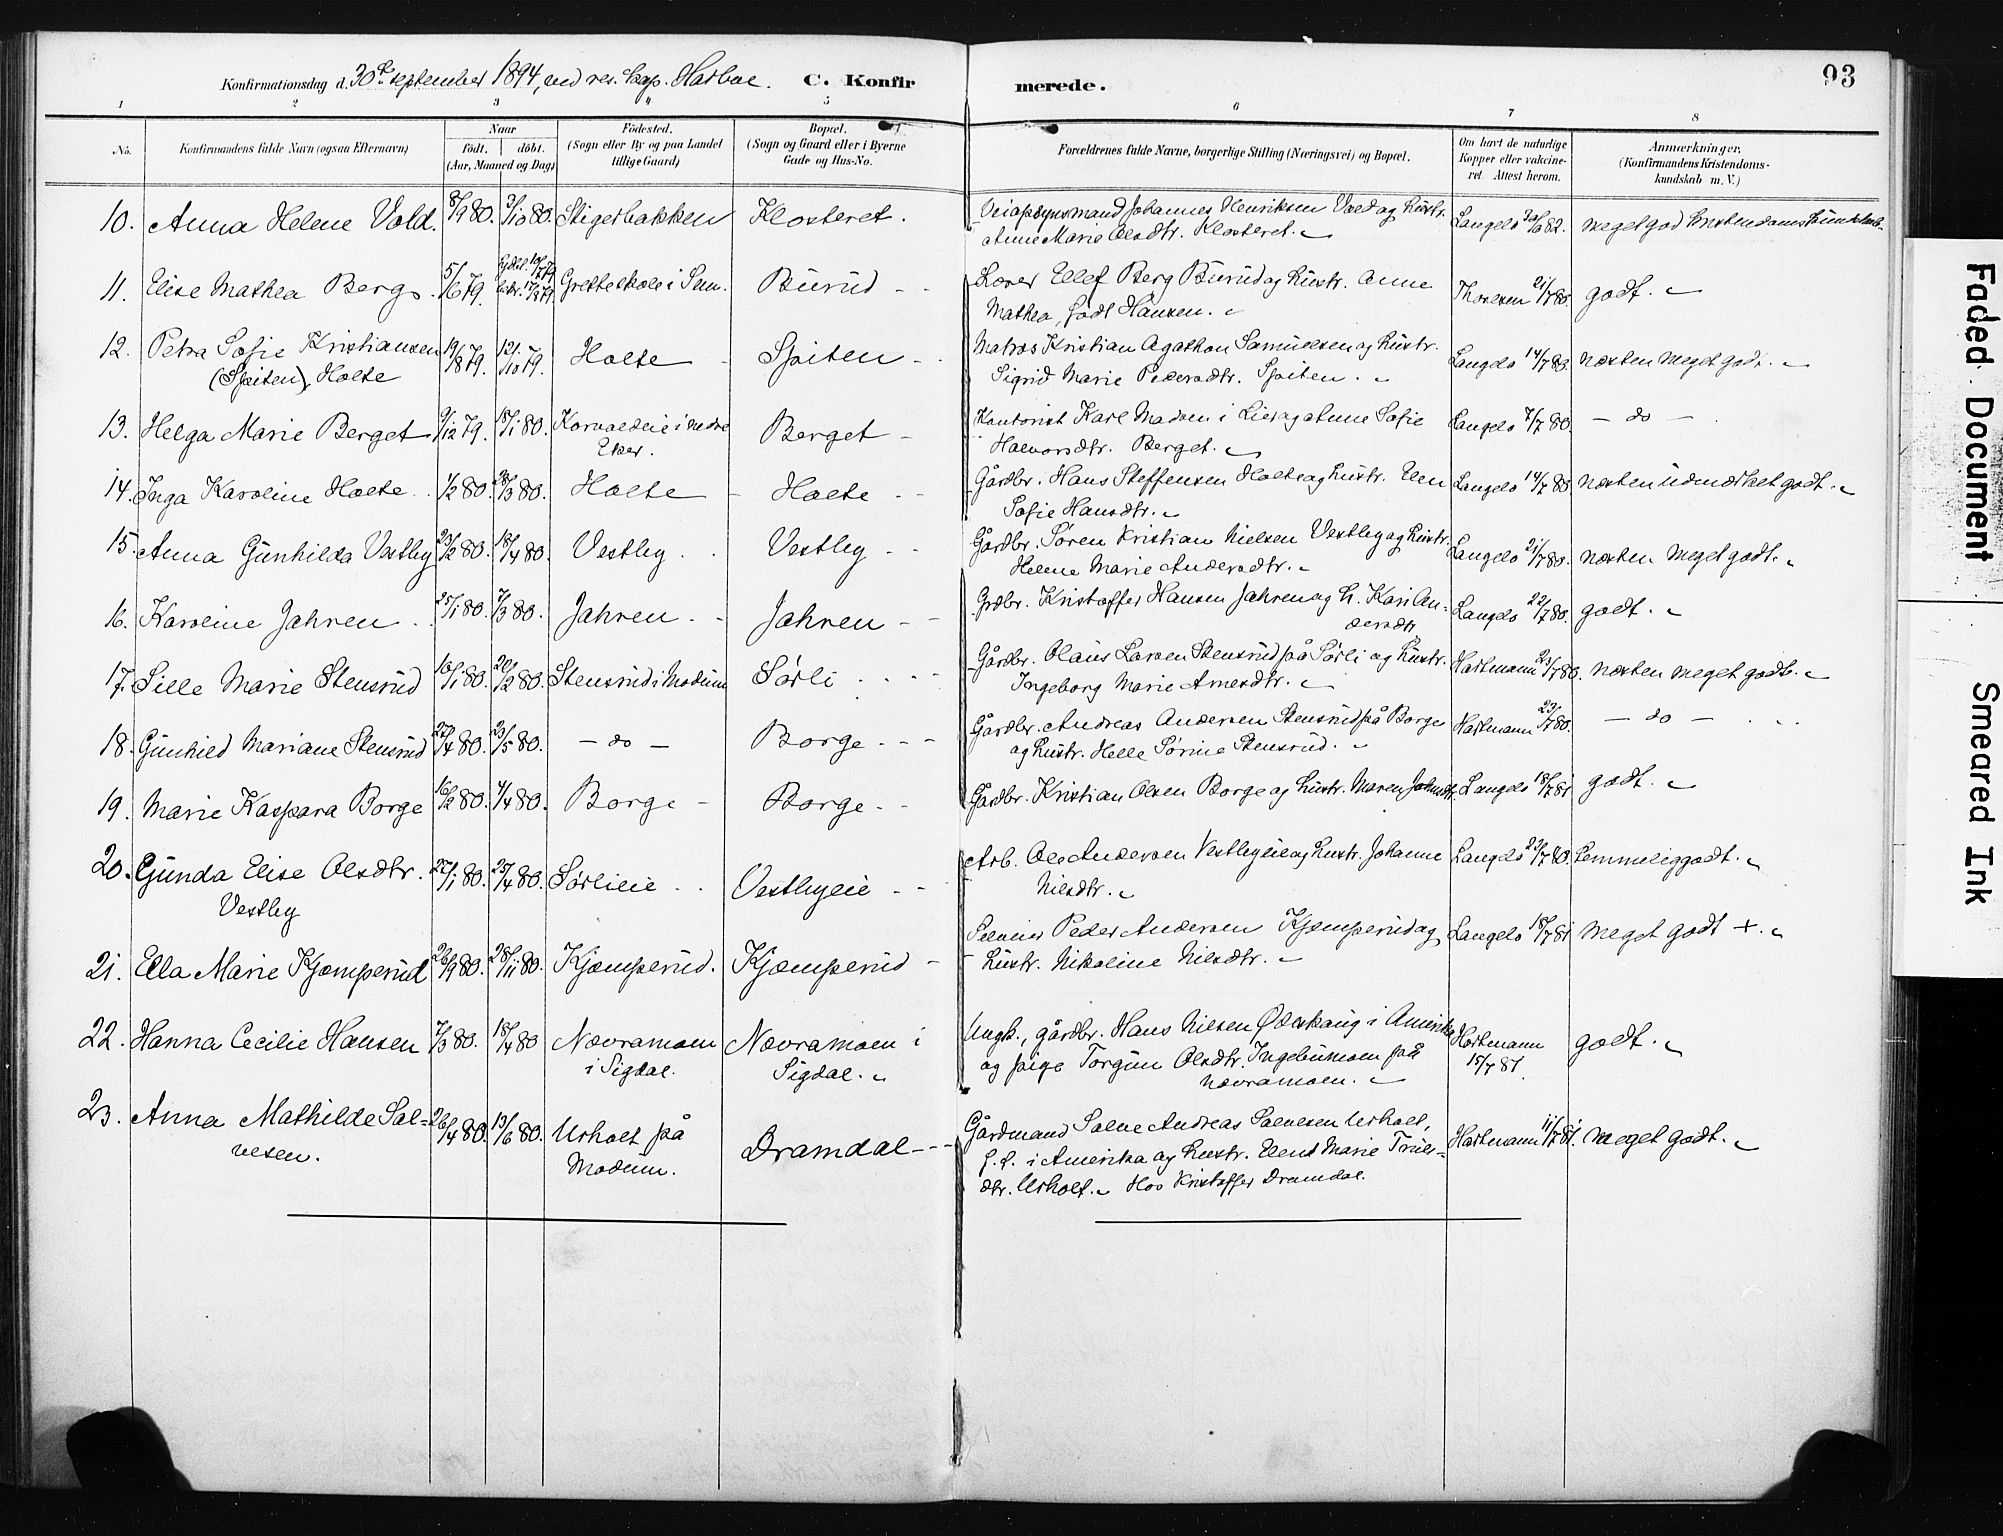 93
Konfirmationsdag d. 30te september 1894, ved res. kap. Harboe. C. Konfirmerede.
1 2 3 4 5 6 7 8
No.
Konfirmandens fulde Navn (ogsaa Efternavn)
Naar
født. døbt.
(Aar, Maaned og Dag)
Fødested.
(Sogn eller By og paa Landet
tillige Gaard)
Bopæl.
(Sogn og Gaard eller i Byerne
Gade og Hus-No.
Forældrenes fulde Navne, borgerlige Stilling (Næringsvei) og Bopæl.
Om havt de naturlige
Kopper eller vakcine-
ret. Attest herom.
Anmærkninger.
(Konfirmandens Kristendoms-
kundskab m. V.)
10. Anna Helene Vold. 8/9 80. 3/10 80. Stigerbakken Klosteret. Veiopsynsmand Johannes Henriksen Vold og hustr. Langelo 30/6 82. meget god kristendomskundskab.
Anne Marie Olsdtr. Klosteret.
11. Elise Mathea Berg. 5/6 79. Gretteskole i Sem. Burud Lærer Ellef Berg Burud og hustr. Anne Thoresen 21/7 80. godt.
Mathea, født Hansen.
12. Petra Sofie Kristiansen 19/8 79. 12/10 79. Holte Spiten Matros Kristian Agathon Samuelsen og hustr. Langelo 14/7 80. næsten meget godt.
(Spiten), Holte Sigrid Marie Pedersdtr. Spiten.
13. Helga Marie Berget 9/12 79. 18/1 80. Korvaldeie i nedre Berget Kontorist Karl Madsen i Lier og Anne Sofie Langelo 7/7 80. - do -
Eker. Halvorsdtr. Berget.
14. Inga Karoline Holte. 1/2 80. 28/3 80. Holte Holte Gårdbr. Hans Steffensen Holte og hustr. Elen Langelo 14/7 80. næsten udmærket godt.
Sofie Hansdtr.
15. Anna Gunhilda Vestby 23/2 80. 18/4 80. Vestby. Vestby Gårdbr. Søren Kristian Nielsen Vestby og hustr. Langelo 21/7 80. næsten meget godt.
Helene Marie Andersdtr.
16. Karoline Jahren 25/1 80. 7/3 80. Jahren Jahren Grdbr. Kristoffer Hansen Jahren og h. Kari An- Langelo 22/7 80. godt.
dersdtr
17. Sille Marie Stensrud 16/1 80. 20/2 80. Stensrud i Modum Sørli Gårdbr. Olaus Larsen Stensrud på Sørli og hustr. Hartmann 23/7 80. næsten meget godt.
Ingeborg Marie Arnesdtr.
18. Gunhild Mariane Stensrud 27/4 80. 23/5 80. - do - Borge Gårdbr. Andreas Andersen Stensrud på Borge Hartmann 23/7 80. - do -
og hustr. Helle Sørine Stensrud.
19. Marie Kaspara Borge 16/2 80. 4/4 80. Borge Borge Gårdbr. Kristian Olsen Borge og hustr. Maren Johnsdtr. Langelo 18/7 81 godt.
20. Gunda Elise Olsdtr. 27/1 80. 25/4 80. Sørlieie Vestbyeie Arb. Ole Andersen Vestbyeie og hustr. Johanne Langelo 23/7 80. temmelig godt.
Vestby Nilsdtr.
21. Ella Marie Kjæmperud 26/9 80. 28/11 80. Kjæmperud. Kjæmperud Selveier Peder Andersen Kjæmperud og Langelo 18/7 81 meget godt +.
hustr. Nikoline Nilsdtr.
22. Hanna Cecilie Hansen 7/3 80. 18/4 80 Nævramoen Nævramoen i Ungk., gårdbr. Hans Nilsen Øderskaug i Amerika Hartmann godt.
i Sigdal. Sigdal. og pige Torgun Olsdtr. Ingebumoen på 15/7 81.
Nævramoen.
23. Anna Mathilde Sal- 26/4 80. 13/6 80. Urholt på Dramdal Gårdmand Salve Andreas Salvesen Urholt, Hartmann 11/7 81. meget godt.
vesen. Modum. f. t. i Amerika og hustr. Elent Marie Truls-
dtr. Urholt. Hos Kristoffer Dramdal.
Faded Document
Smeared Ink